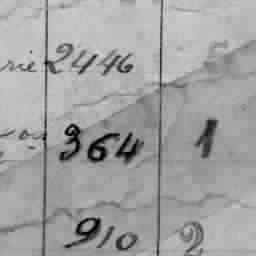 2446
364 1
910 2